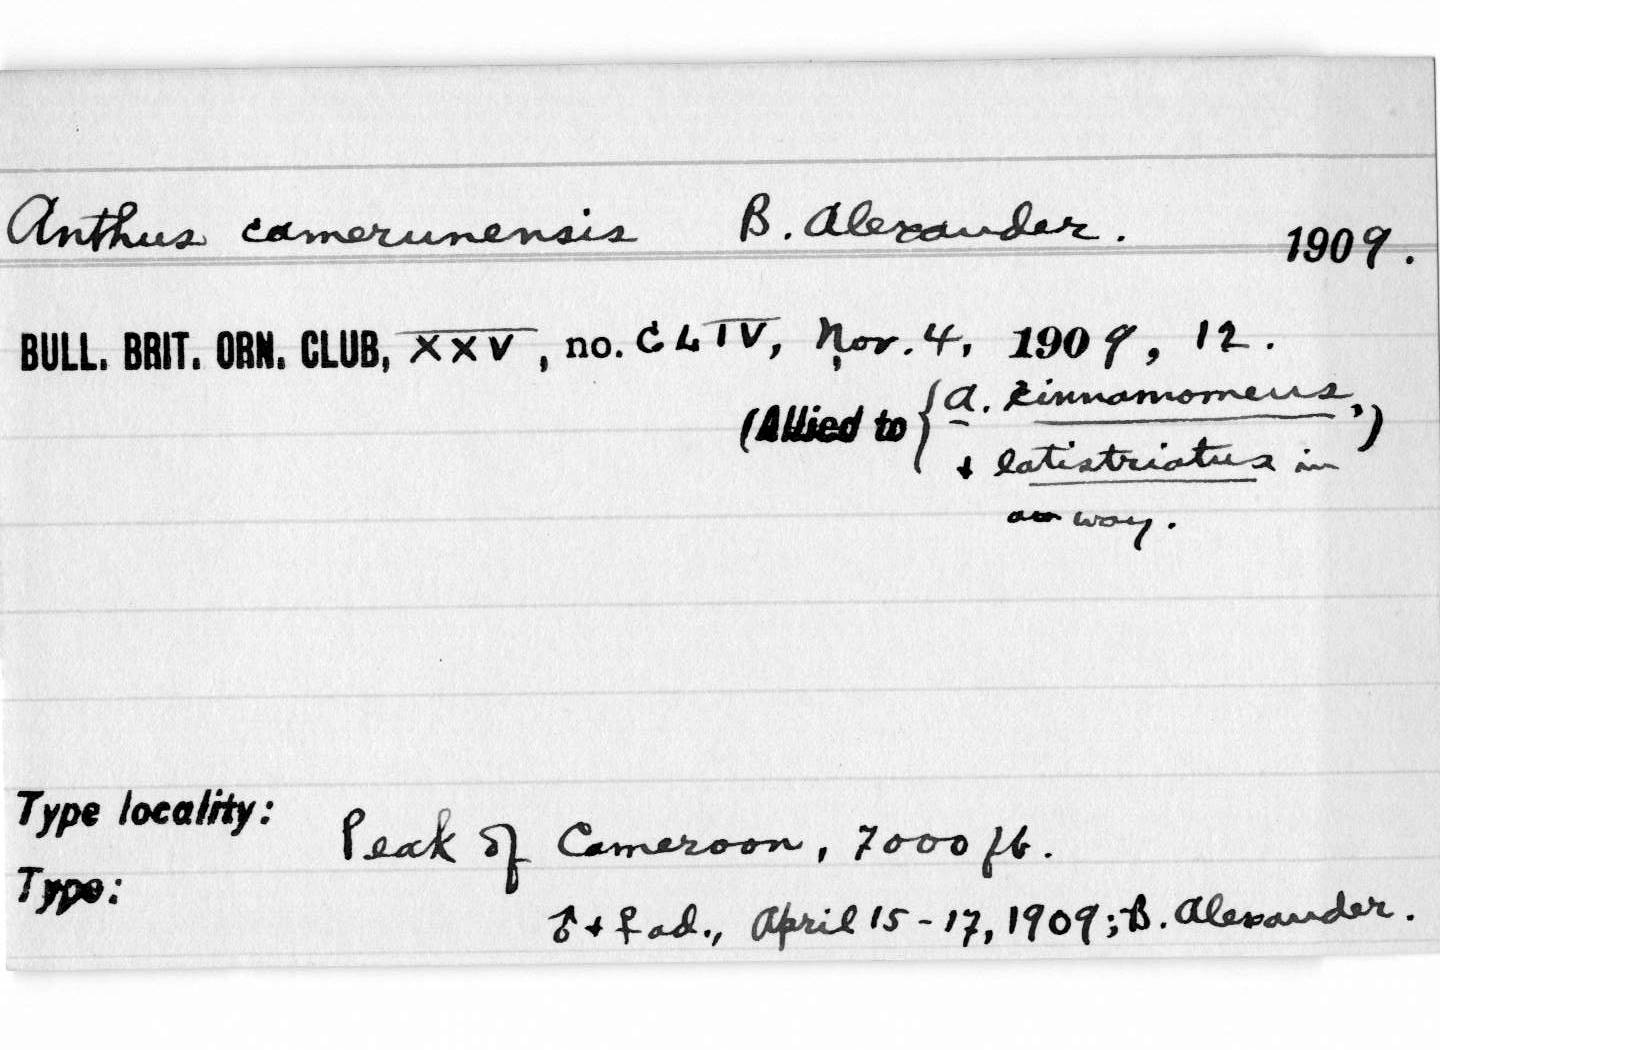 Anthus camerunensis B. Alexander. 1909.
BULL. BRIT. ORN. CLUB, XXV, no. CLIV, Nov. 4, 1909, 12.
(Allied to { A. cinnamomeus,)
+ latistriatus in
way.
Type locality: Peak of Cameroon, 7000 ft.
Type:
♂ + ♀ ad., April 15-17, 1909; B. Alexander.